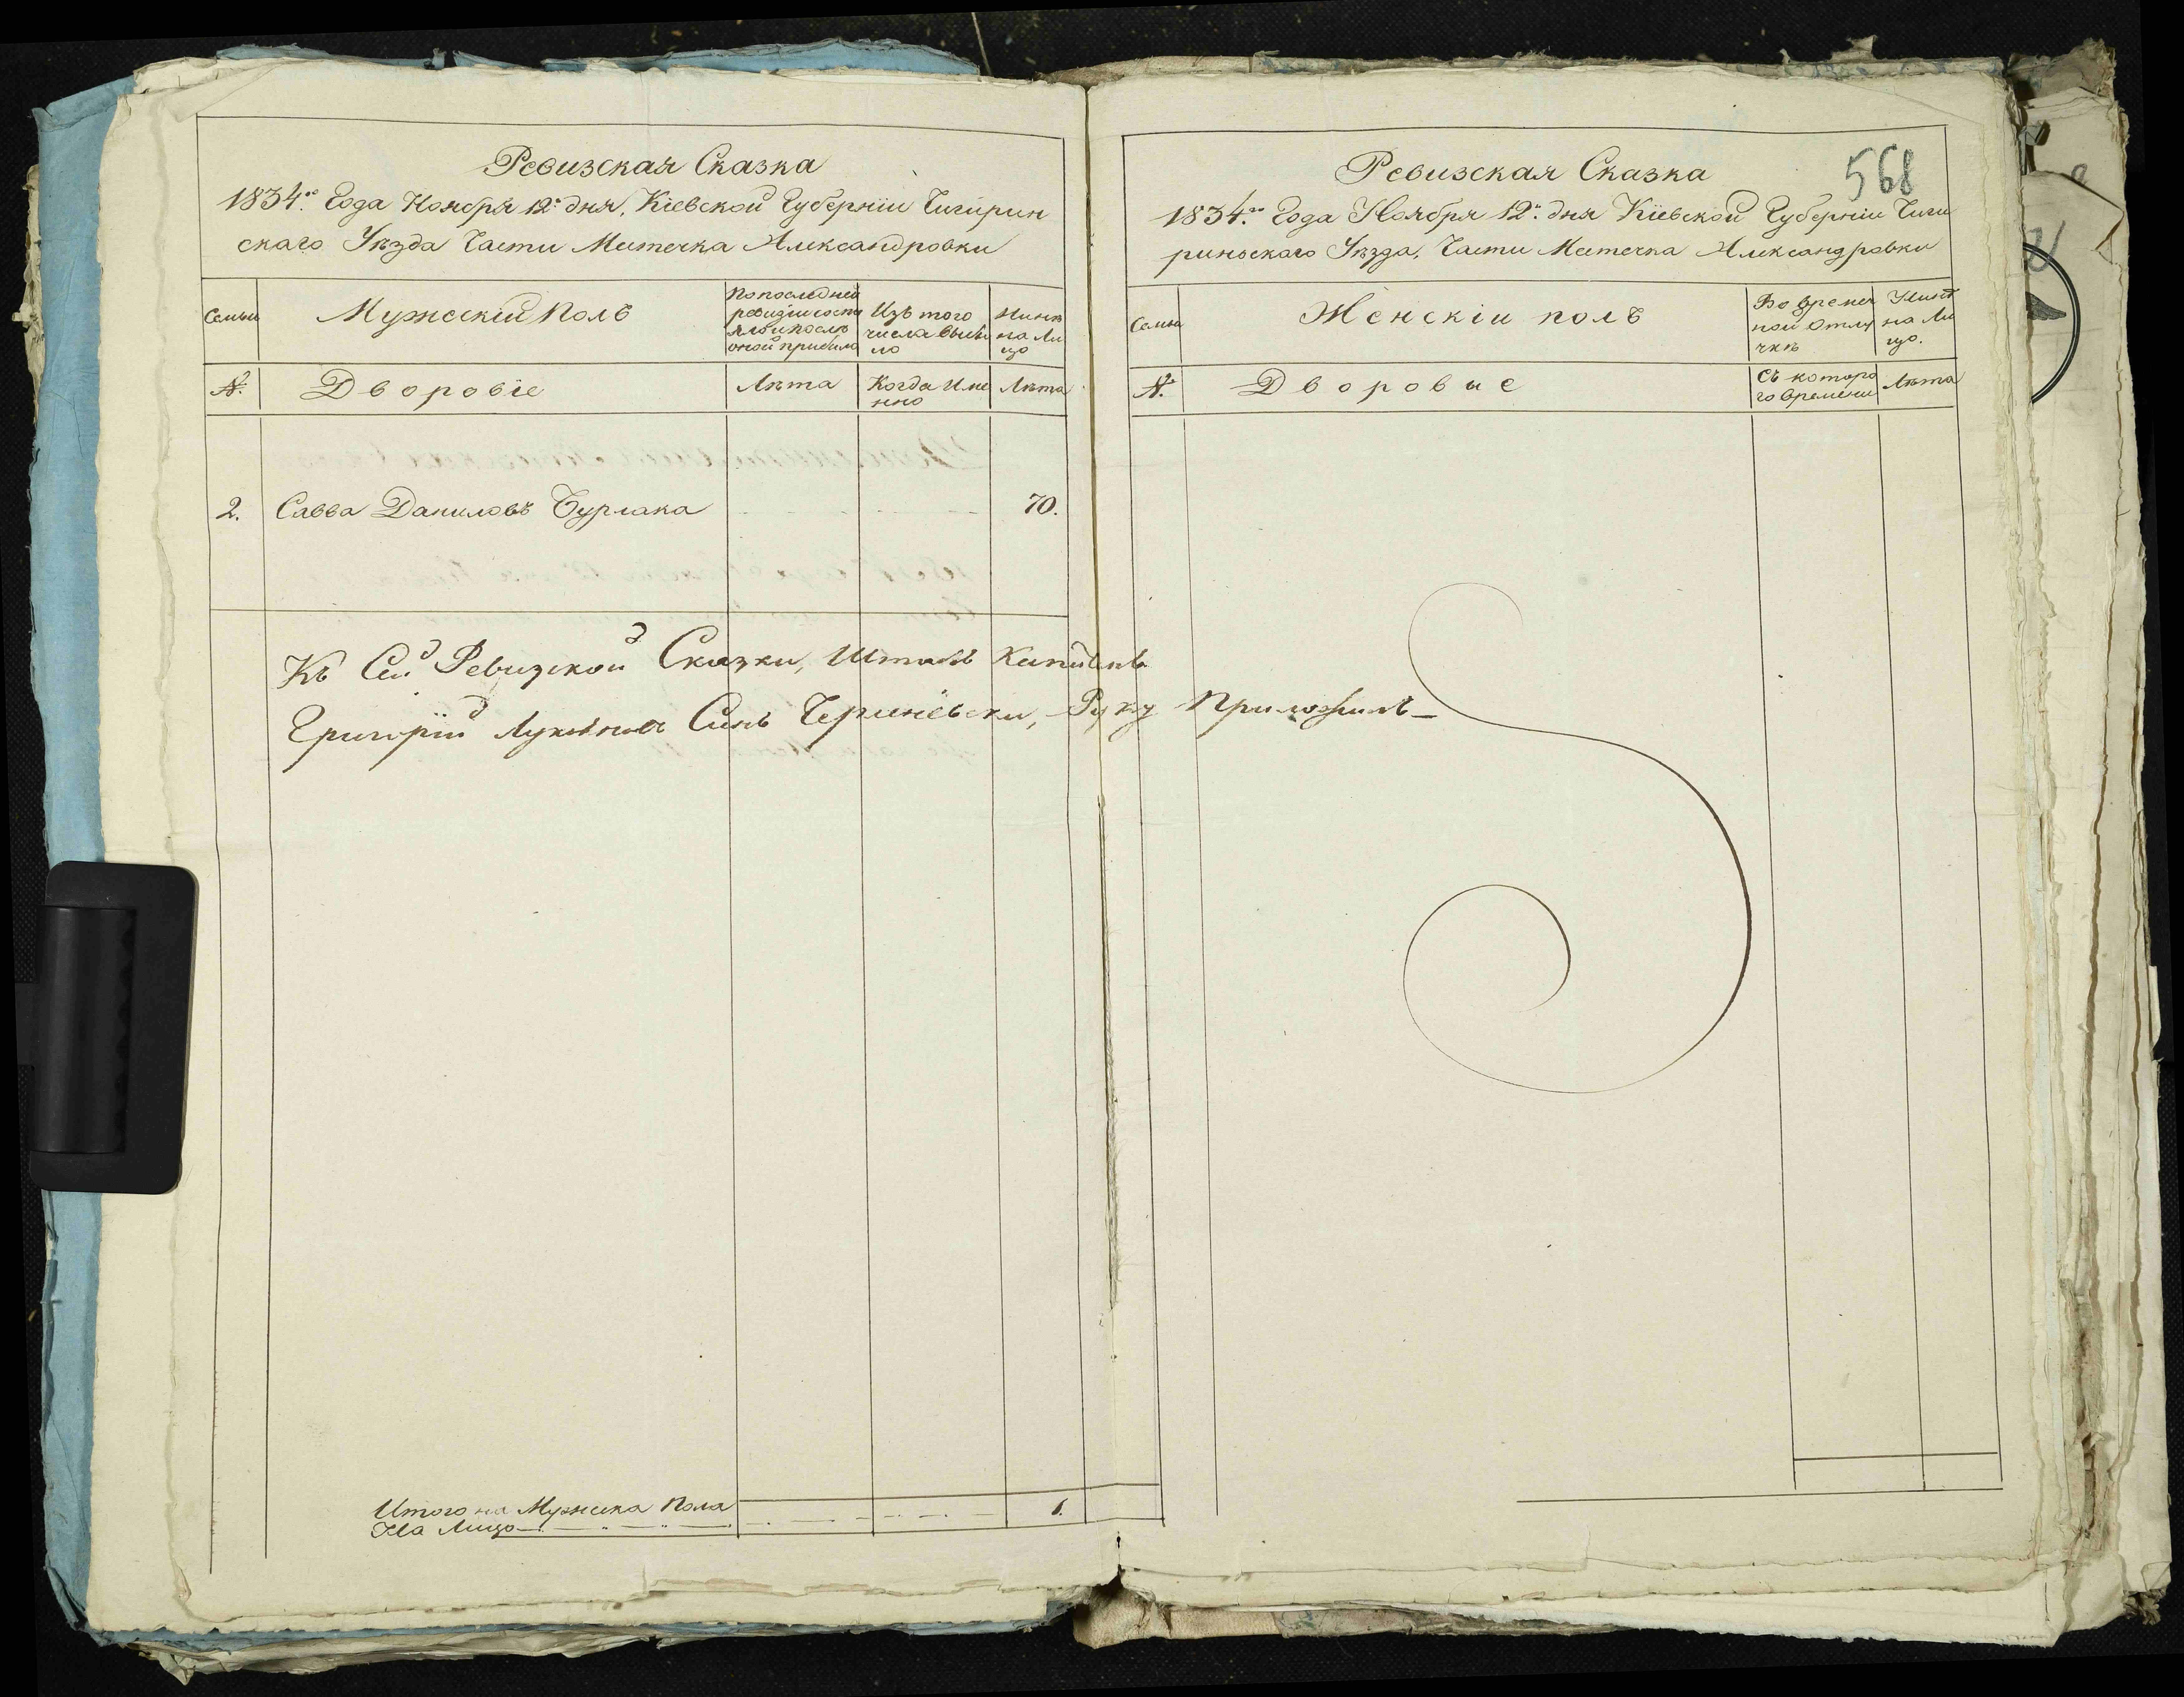 Ревизская Сказка
1834го Года Ноября 12го дня, Кіевской Губерніи Чигирин
скаго Уѣзда Части Местечка Александровки
Семьи
Мужескій Полъ
По последней
ревизіи состо
ялъ и послѣ
оной прибыло
Изъ того
числа выбы
ло
Нинѣ
на Ли
цо
№.
Дворовіе
Лѣта
Когда Име
нно
Лѣта
2.
Савва Даниловъ Бурлака
70.
Къ Сей Ревизской Сказки, Штабъ Капитанъ
Григорій Лукьяновъ Синъ Руку Приложилъ
Итого на Мужеска Пола
На Лицо
1.
568
Ревизская Сказка
1834го Года Ноября 12го дня Кіевской Губерніи Чиги
риньскаго Уѣзда, Части Местечка Александровки
Семьи
Женскіи полъ
Во времен
ной отлу
чкѣ
Нинѣ
на Ли
цо.
№.
Дворовые
Съ которо
го времени
Лѣта